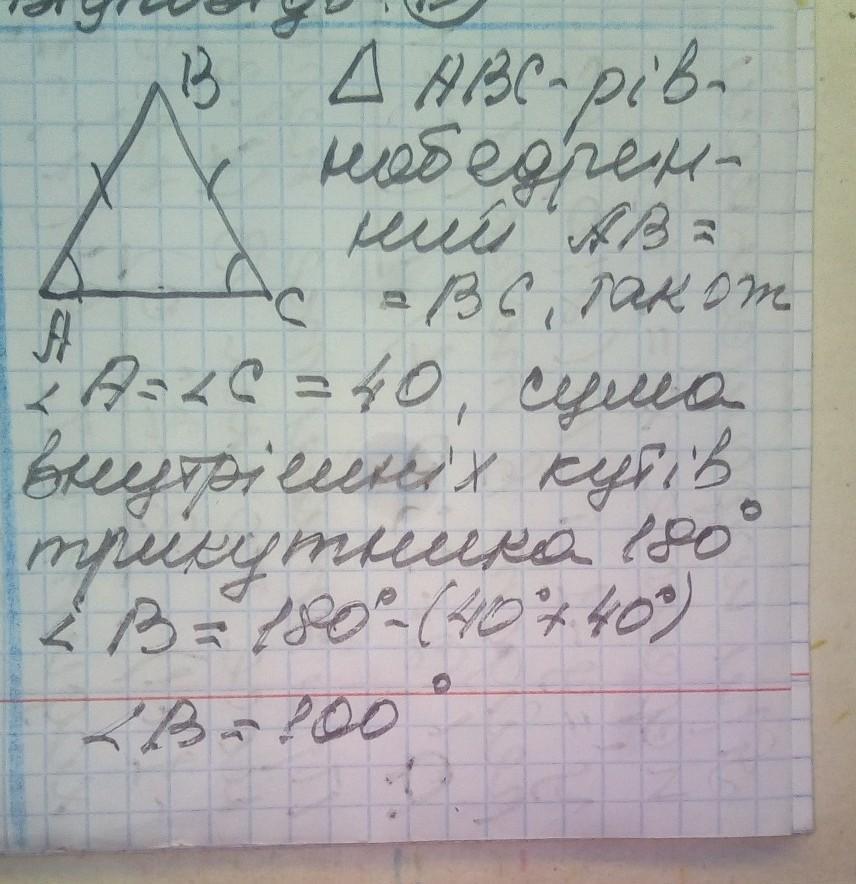 B
A
C
Δ ABC-рів-
нобедрен-
ний AB=
=BC, також
∠A=∠C=40, сума
внутрішніх кутів
трикутника 180°
∠B=180°-(40°+40°)
∠B=100°